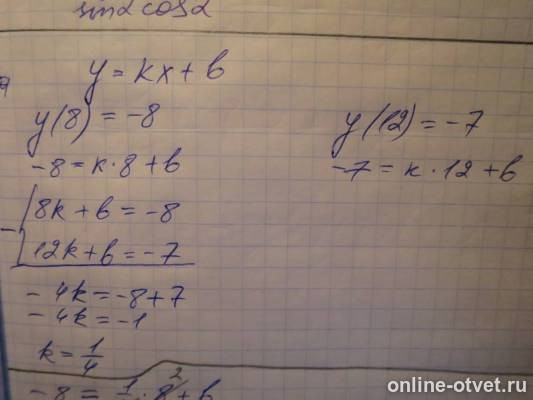 sinα cosα
y = kx + b
y(8) = -8
y(12) = -7
-8 = k·8 + b
-7 = k·12 + b
8k + b = -8
12k + b = -7
- 4k = -8+7
- 4k = -1
k = 1/4
-8 = 1·8 2 + b
online-otvet.ru